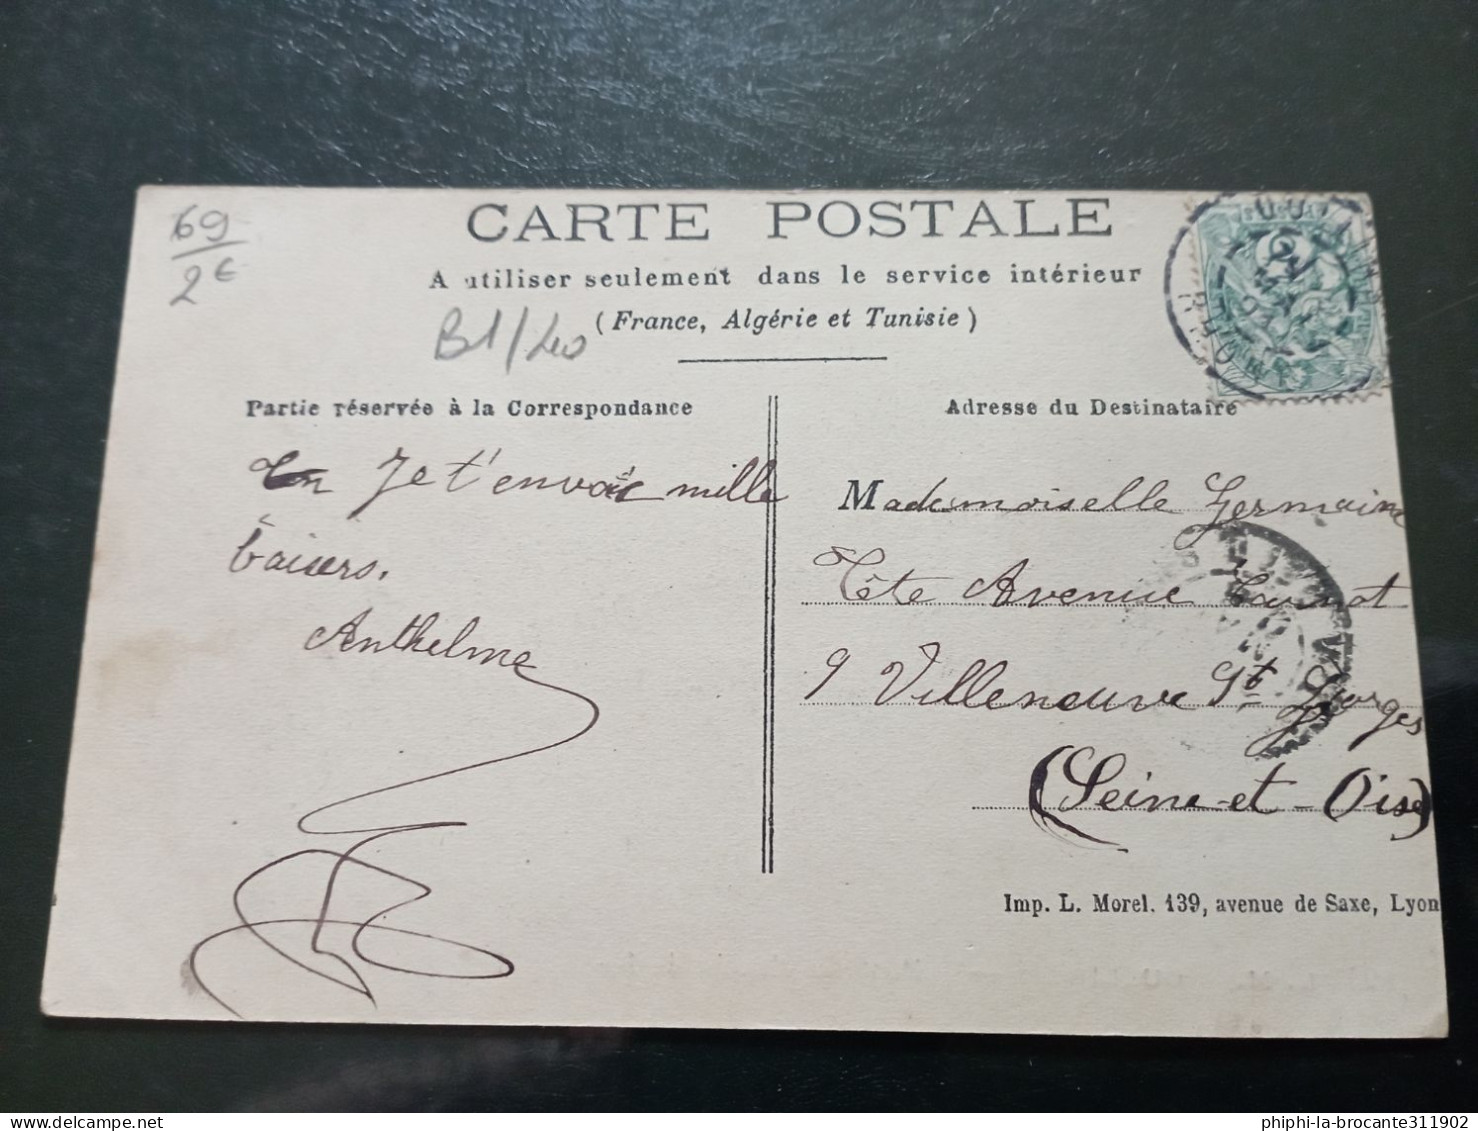 69
2€
CARTE POSTALE
A utiliser seulement dans le service intérieur
(France, Algérie et Tunisie)
B1/40
Partie réservée à la Correspondance
Adresse du Destinataire
Je t'envoie mille
baisers.
Anthelme
Mademoiselle Germaine
Tête Avenue Carnot
9 Villeneuve St Georges
(Seine-et-Oise)
Imp. L. Morel. 139, avenue de Saxe, Lyon
phiphi-la-brocante311902